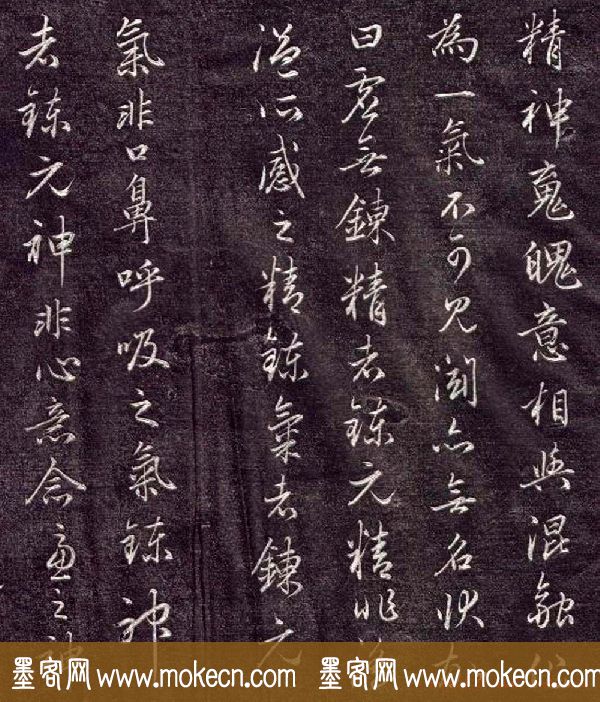 精神魂魄意相與混融
為一氣不可見聞亦無名狀
曰虛無鍊精者鍊元精非
溢所感之精鍊氣者鍊元
氣非口鼻呼吸之氣鍊神
者鍊元神非心意念慮之神
墨客网 www.mokecn.com 墨客网 www.mokecn.com